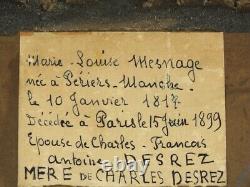 Marie-Louise Mesnage
née à Périers-Manche
le 10 Janvier 1817
Décédée à Paris le 15 Juin 1899
Epouse de Charles-Francais
Antoine DESREZ
MERE DE CHARLES DESREZ